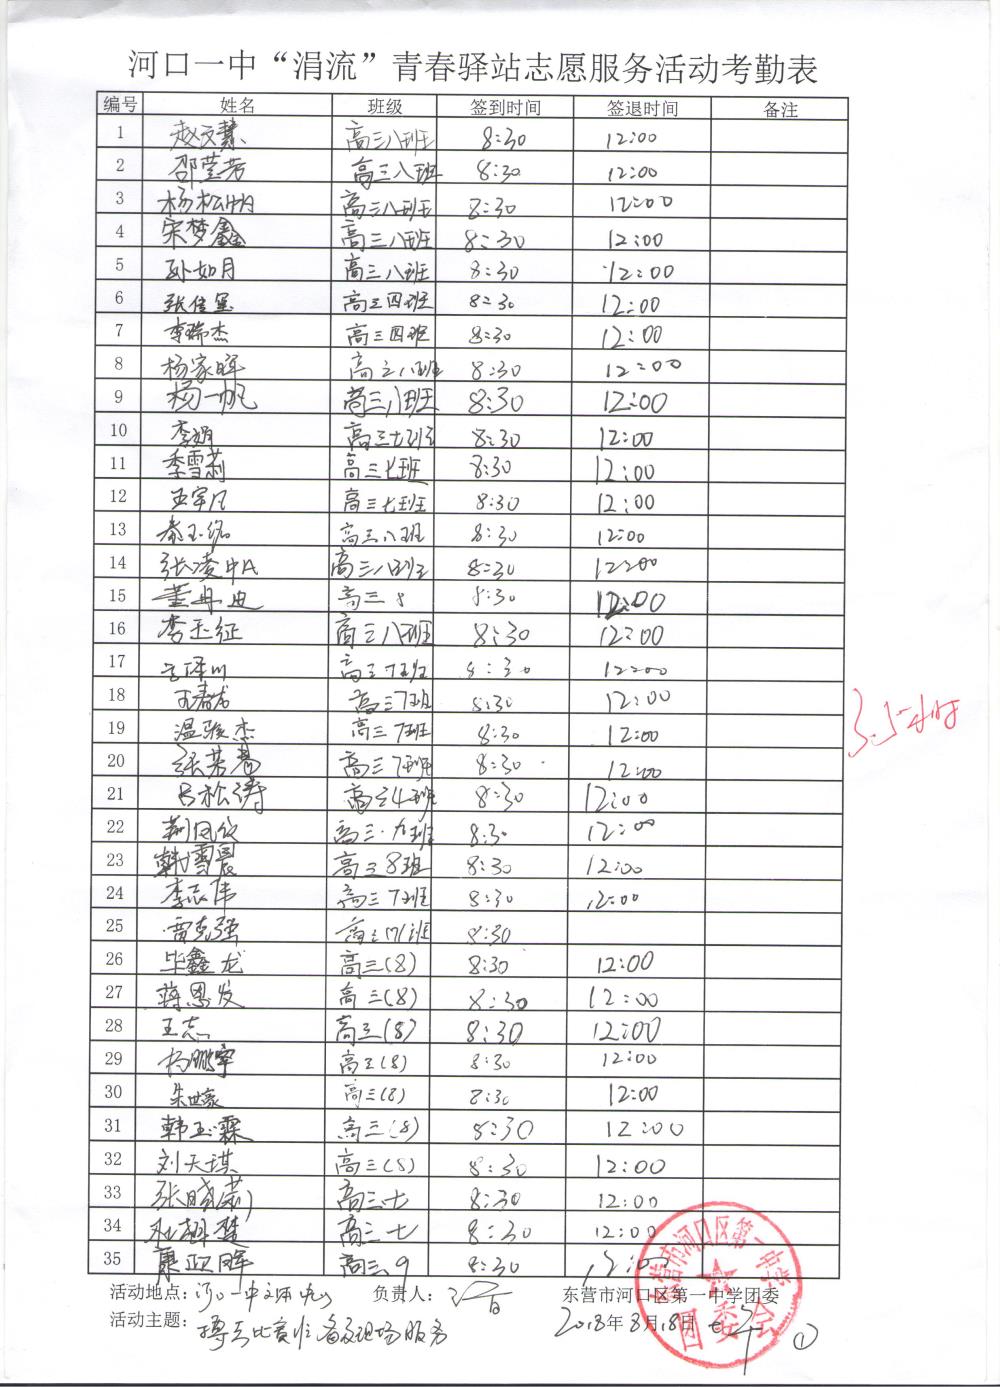 河口一中“涓流”青春驿站志愿服务活动考勤表
编号 姓名 班级 签到时间 签退时间 备注
1 赵文慧 高三八班 8:30 12:00
2 邵莹芳 高三八班 8:30 12:00
3 杨松 高三八班 8:30 12:00
4 宋梦鑫 高三八班 8:30 12:00
5 孙如月 高三八班 8:30 12:00
6 张佳 高三四班 8:30 12:00
7 李瑞杰 高三四班 8:30 12:00
8 杨家晖 高三八班 8:30 12:00
9 杨一帆 高三八班 8:30 12:00
10 李娟 高三七班 8:30 12:00
11 季雪莉 高三七班 8:30 12:00
12 王宇凡 高三七班 8:30 12:00
13 秦玉铭 高三八班 8:30 12:00
14 张凌 高三八班 8:30 12:00
15 董丹迪 高三8 8:30 12:00
16 李玉征 高三八班 8:30 12:00
17 高三7班 8:30 12:00
18 王春龙 高三7班 8:30 12:00
19 温骏杰 高三7班 8:30 12:00
20 张芳 高三7班 8:30 12:00
21 吕松涛 高三4班 8:30 12:00
22 荆凤 高三九班 8:30 12:00
23 韩雪晨 高三8班 8:30 12:00
24 李志伟 高三7班 8:30 12:00
25 雷克强 高三 班 8:30
26 毕鑫龙 高三(8) 8:30 12:00
27 蒋恩发 高三(8) 8:30 12:00
28 王志 高三(8) 8:30 12:00
29 杨鹏宇 高三(8) 8:30 12:00
30 朱世豪 高三(8) 8:30 12:00
31 韩玉霖 高三(8) 8:30 12:00
32 刘天琪 高三(8) 8:30 12:00
33 张晓莉 高三七 8:30 12:00
34 楚 高三七 8:30 12:00
35 康政晖 高三9 8:30 12:00
3.5小时
活动地点：河口一中文体中心 负责人： 东营市河口区第一中学团委
活动主题： 比赛 现场服务 2018年8月18日
东营市河口区第一中学
团委会
①